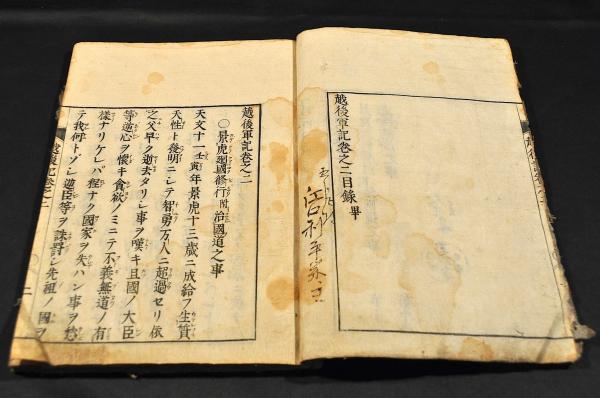 越後軍記巻之二目録畢
越後軍記巻之二
○景虎廻國修行附治國道之事
天文十一壬寅年景虎十三歳ニ成給フ生質
天性ト後明ニシテ智勇万人ニ超過セリ依
之父早ク逝去タリシ事ヲ嘆キ且國ノ大臣
等逆心ヲ懐キ貪欲ノミニテ不義無道ノ有
様ナリケレバ程ナク國家ヲ失ハン事ヲ愁
テ我何トゾシ逆臣等ヲ誅罸シ先祖ノ國ヲ
越後軍記巻之二
二